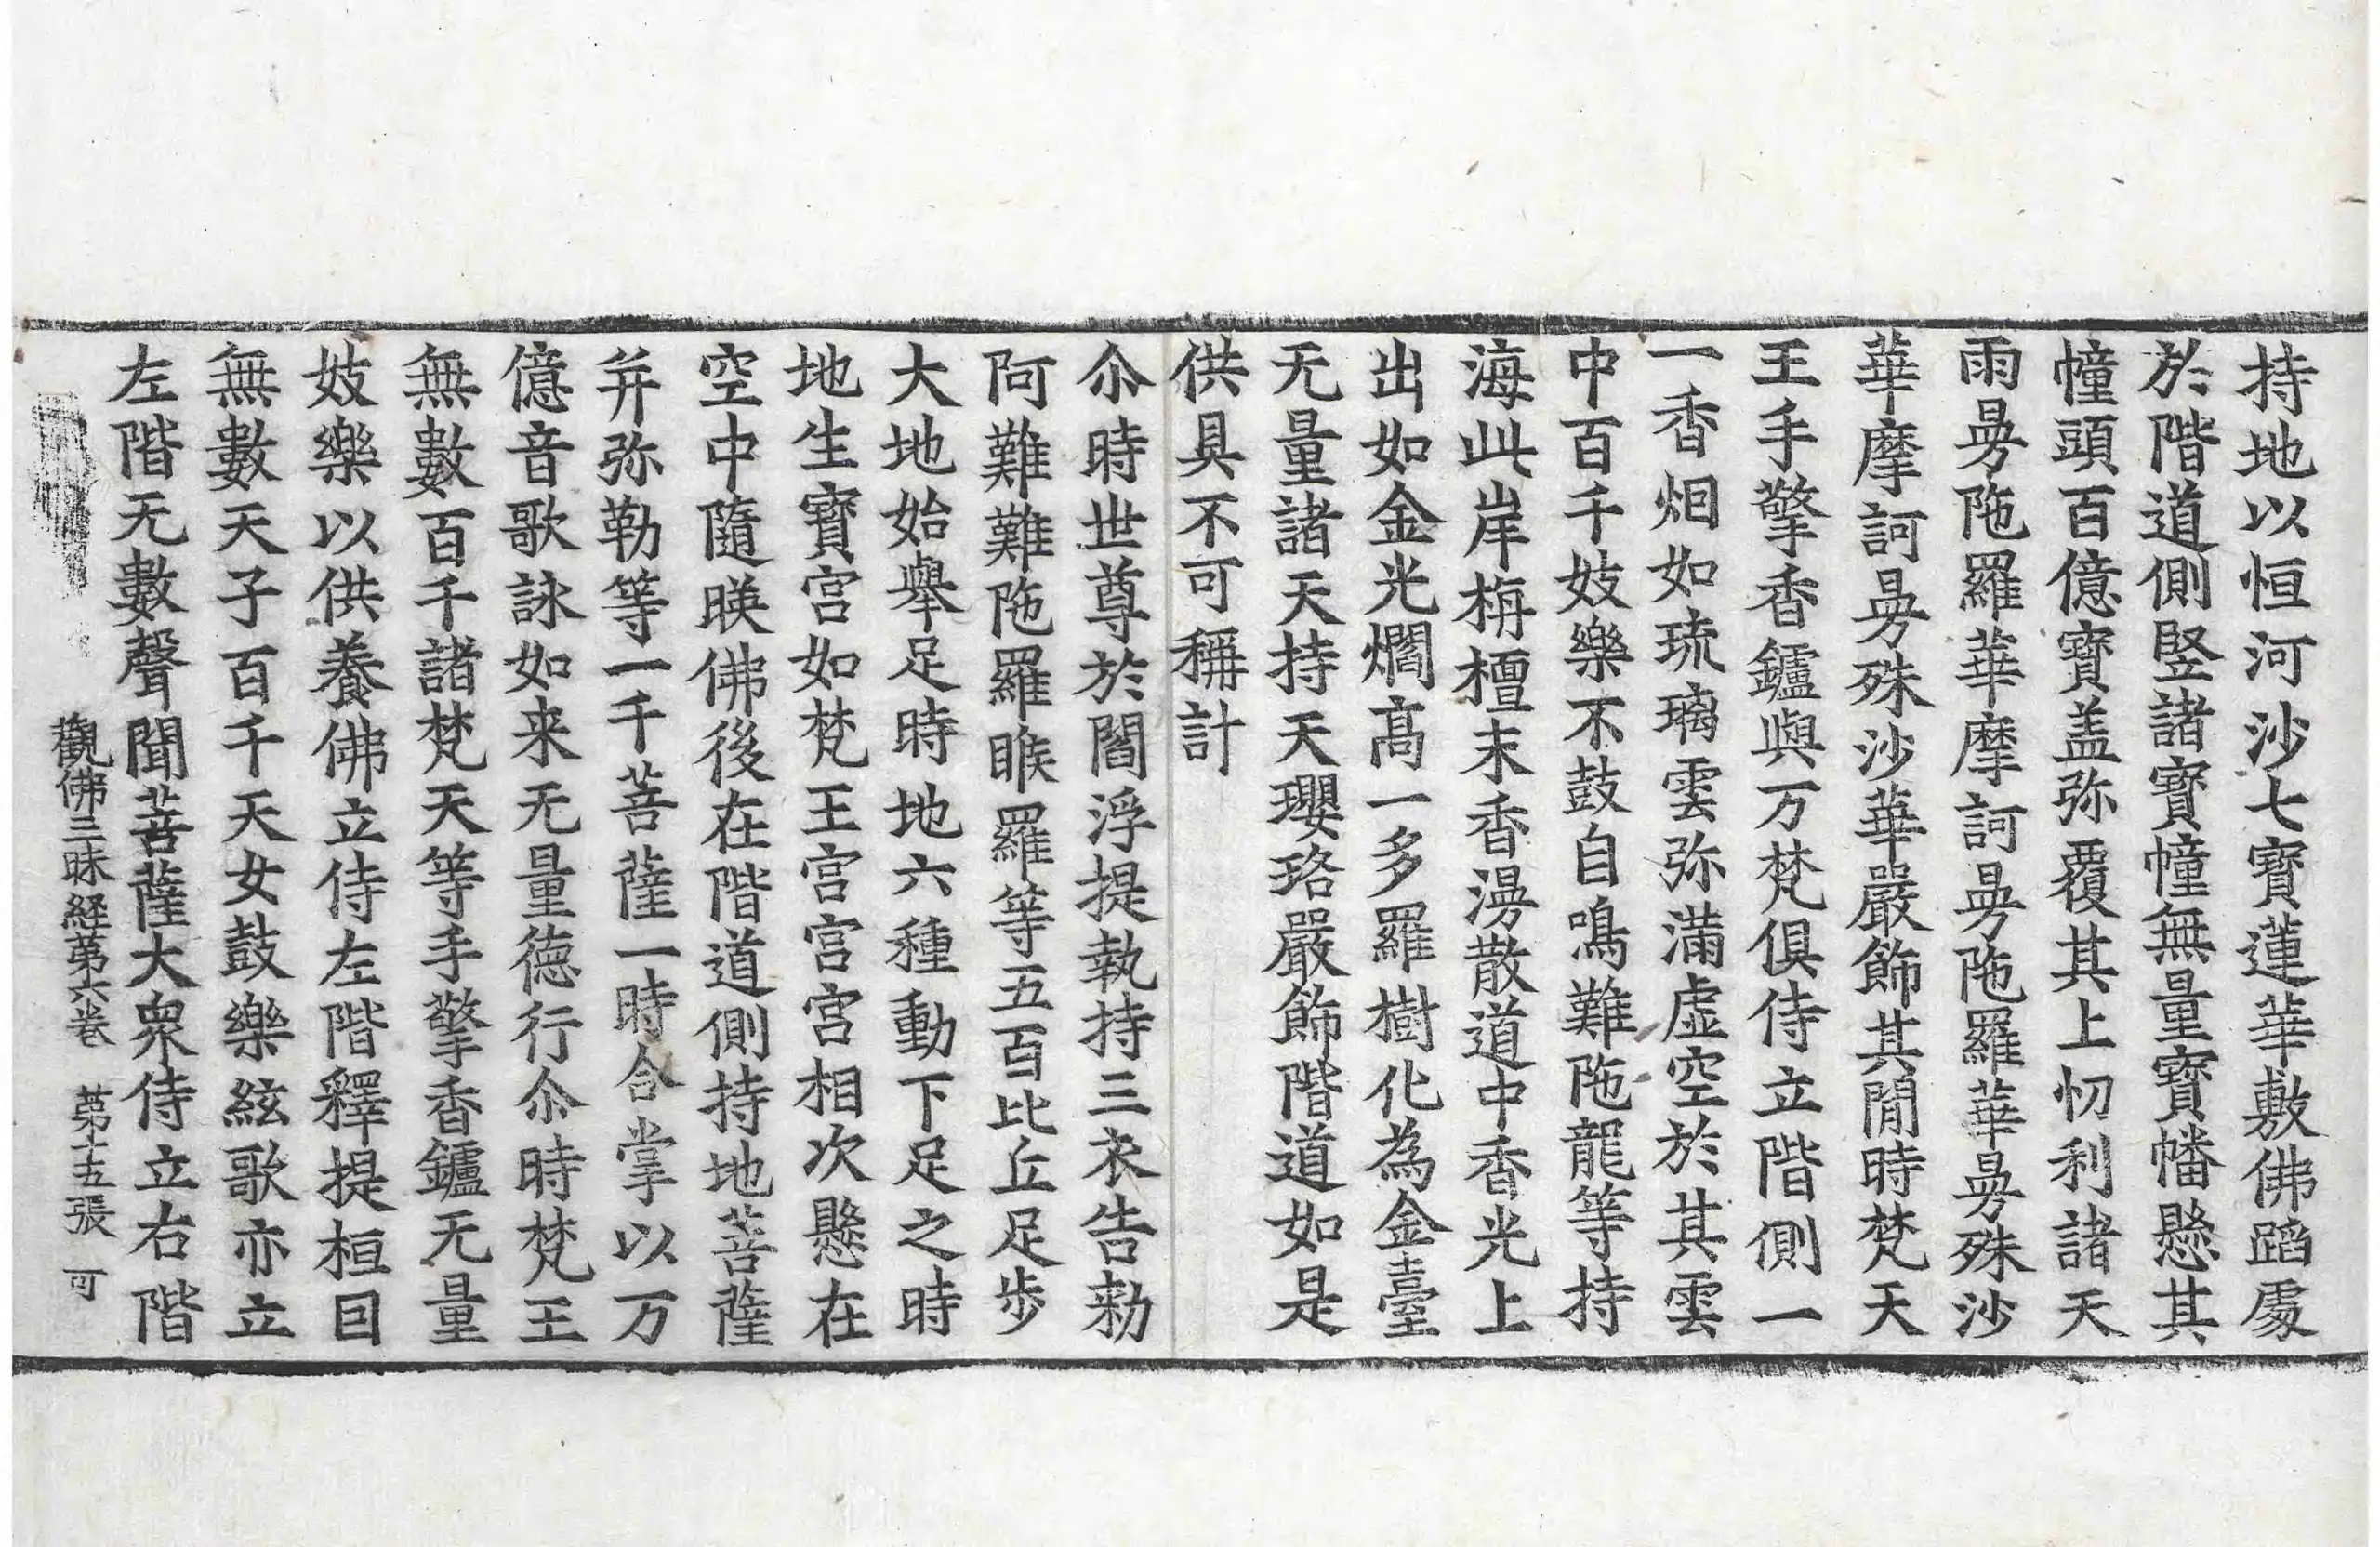 持地以恒河沙七寶蓮華敷佛蹈處
於階道側竪諸寶幢無量寶幡懸其
幢頭百億寶盖弥覆其上忉利諸天
雨曼陁羅華摩訶曼陁羅華曼殊沙
華摩訶曼殊沙華嚴飾其閒時梵天
王手擎香鑪與万梵俱侍立階側一
一香烟如琉璃雲弥滿虛空於其雲
中百千妓樂不鼓自鳴難陁龍等持
海此岸栴檀末香湯散道中香光上
出如金光爓高一多羅樹化為金臺
无量諸天持天瓔珞嚴飾階道如是
供具不可稱計
尒時世尊於閻浮提執持三衣告勑
阿難難陁羅睺羅等五百比丘足步
大地始舉足時地六種動下足之時
地生寶宮如梵王宮宮宮相次懸在
空中隨暎佛後在階道側持地菩薩
并弥勒等一千菩薩一時合掌以万
億音歌詠如来无量德行尒時梵王
無數百千諸梵天等手擎香鑪无量
妓樂以供養佛立侍左階釋提桓因
無數天子百千天女鼓樂絃歌亦立
左階无數聲聞菩薩大衆侍立右階
觀佛三昧経第六卷 第十五張 可